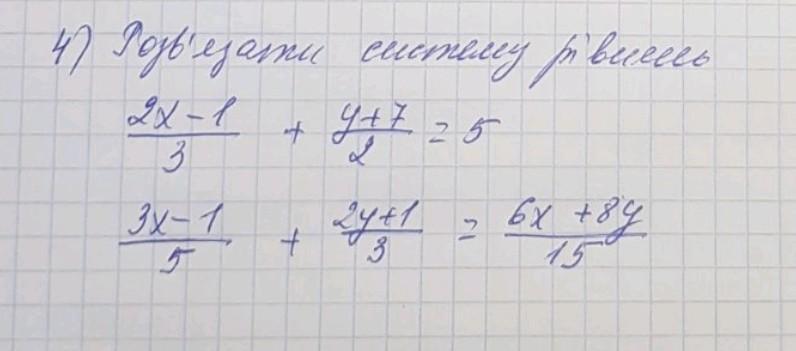 4) Розв'язати систему рівнянь
(2x-1)/3 + (y+7)/2 = 5
(3x-1)/5 + (2y+1)/3 = (6x+8y)/15